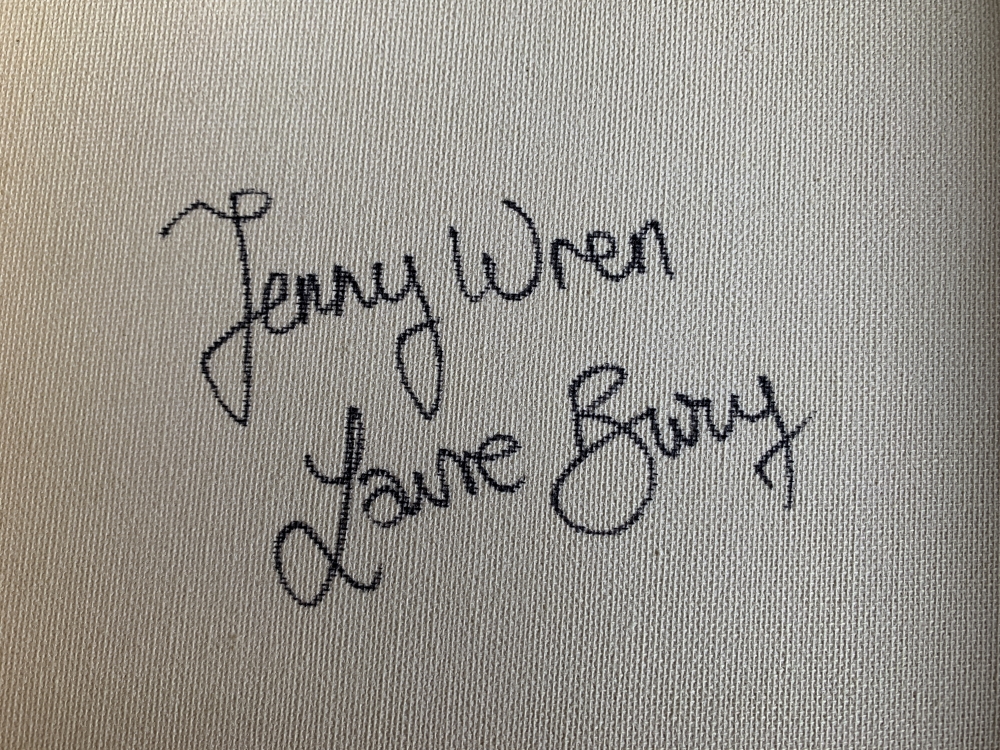 Jenny Wren
Laure Bury